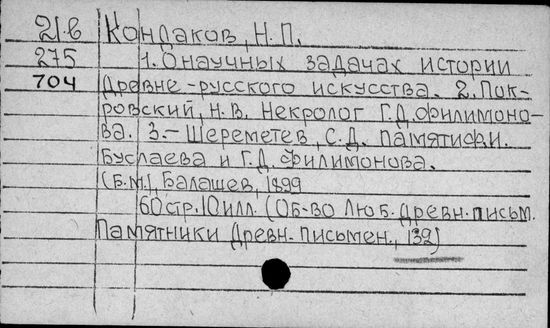 21.в Кондаков, Н.П.
275 1. О научных задачах истории
704 Древне-русского искусства. 2. Пок-
ровский, Н.В. Некролог Г.Д. Филимоно-
ва. 3.- Шереметев, С.Д. Памяти Ф.И.
Буслаева и Г.Д. Филимонова.
(Б.М.), Балашев, 1899
60стр. 10илл. (Об-во Люб. Древн. письм.
Памятники Древн. письмен., 132)